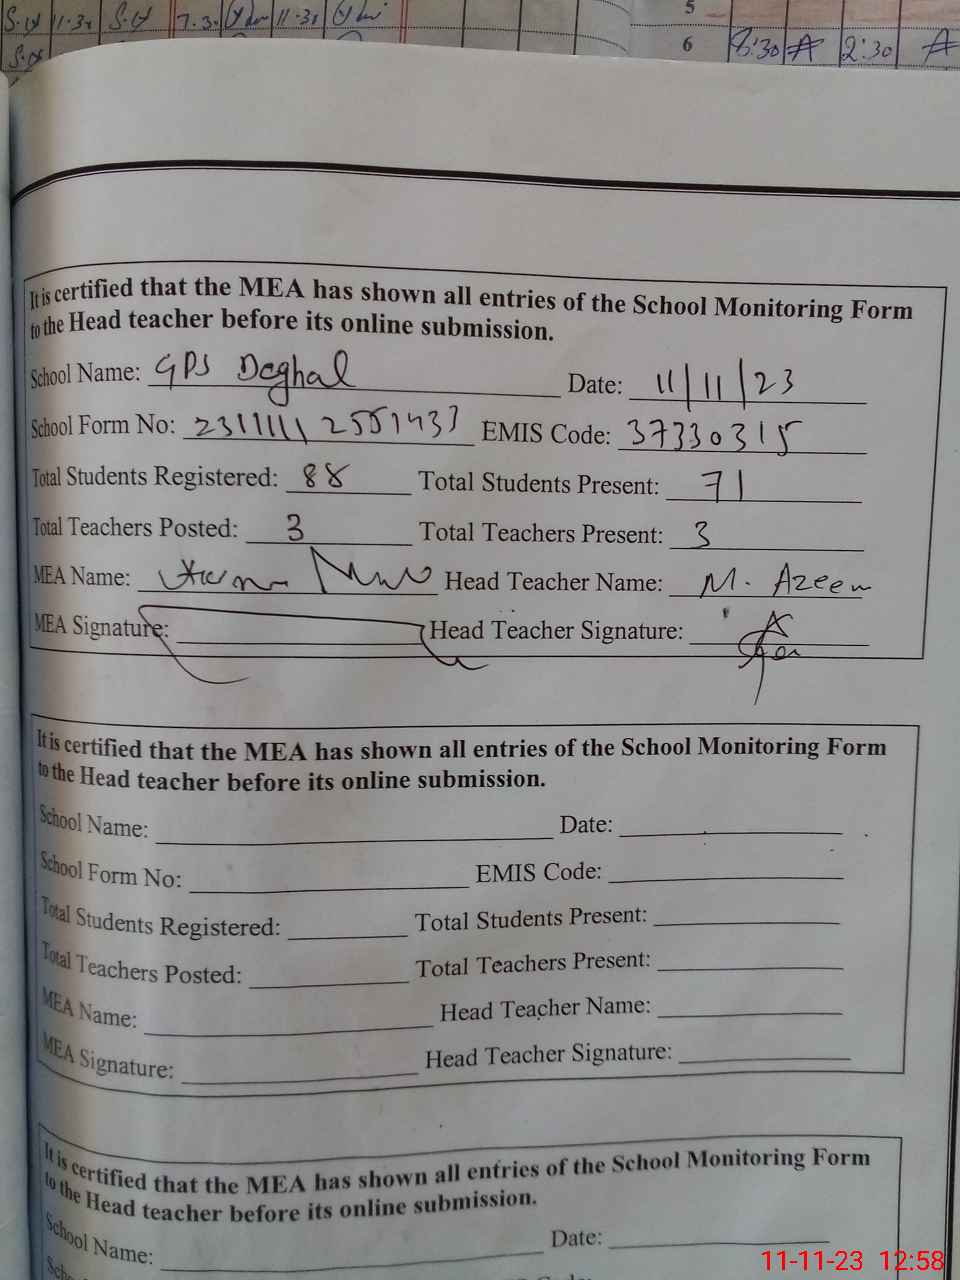 5
6 8:30 A 2:30 A
It is certified that the MEA has shown all entries of the School Monitoring Form
to the Head teacher before its online submission.
School Name: GPS Deghal Date: 11/11/23
School Form No: EMIS Code: 37330315
Total Students Registered: 88 Total Students Present: 71
Total Teachers Posted: 3 Total Teachers Present: 3
MEA Name: Head Teacher Name: M. Azeem
MEA Signature: Head Teacher Signature:
It is certified that the MEA has shown all entries of the School Monitoring Form
to the Head teacher before its online submission.
School Name: Date:
School Form No: EMIS Code:
Total Students Registered: Total Students Present:
Total Teachers Posted: Total Teachers Present:
MEA Name: Head Teacher Name:
MEA Signature: Head Teacher Signature:
It is certified that the MEA has shown all entries of the School Monitoring Form
to the Head teacher before its online submission.
School Name: Date:
11-11-23 12:58